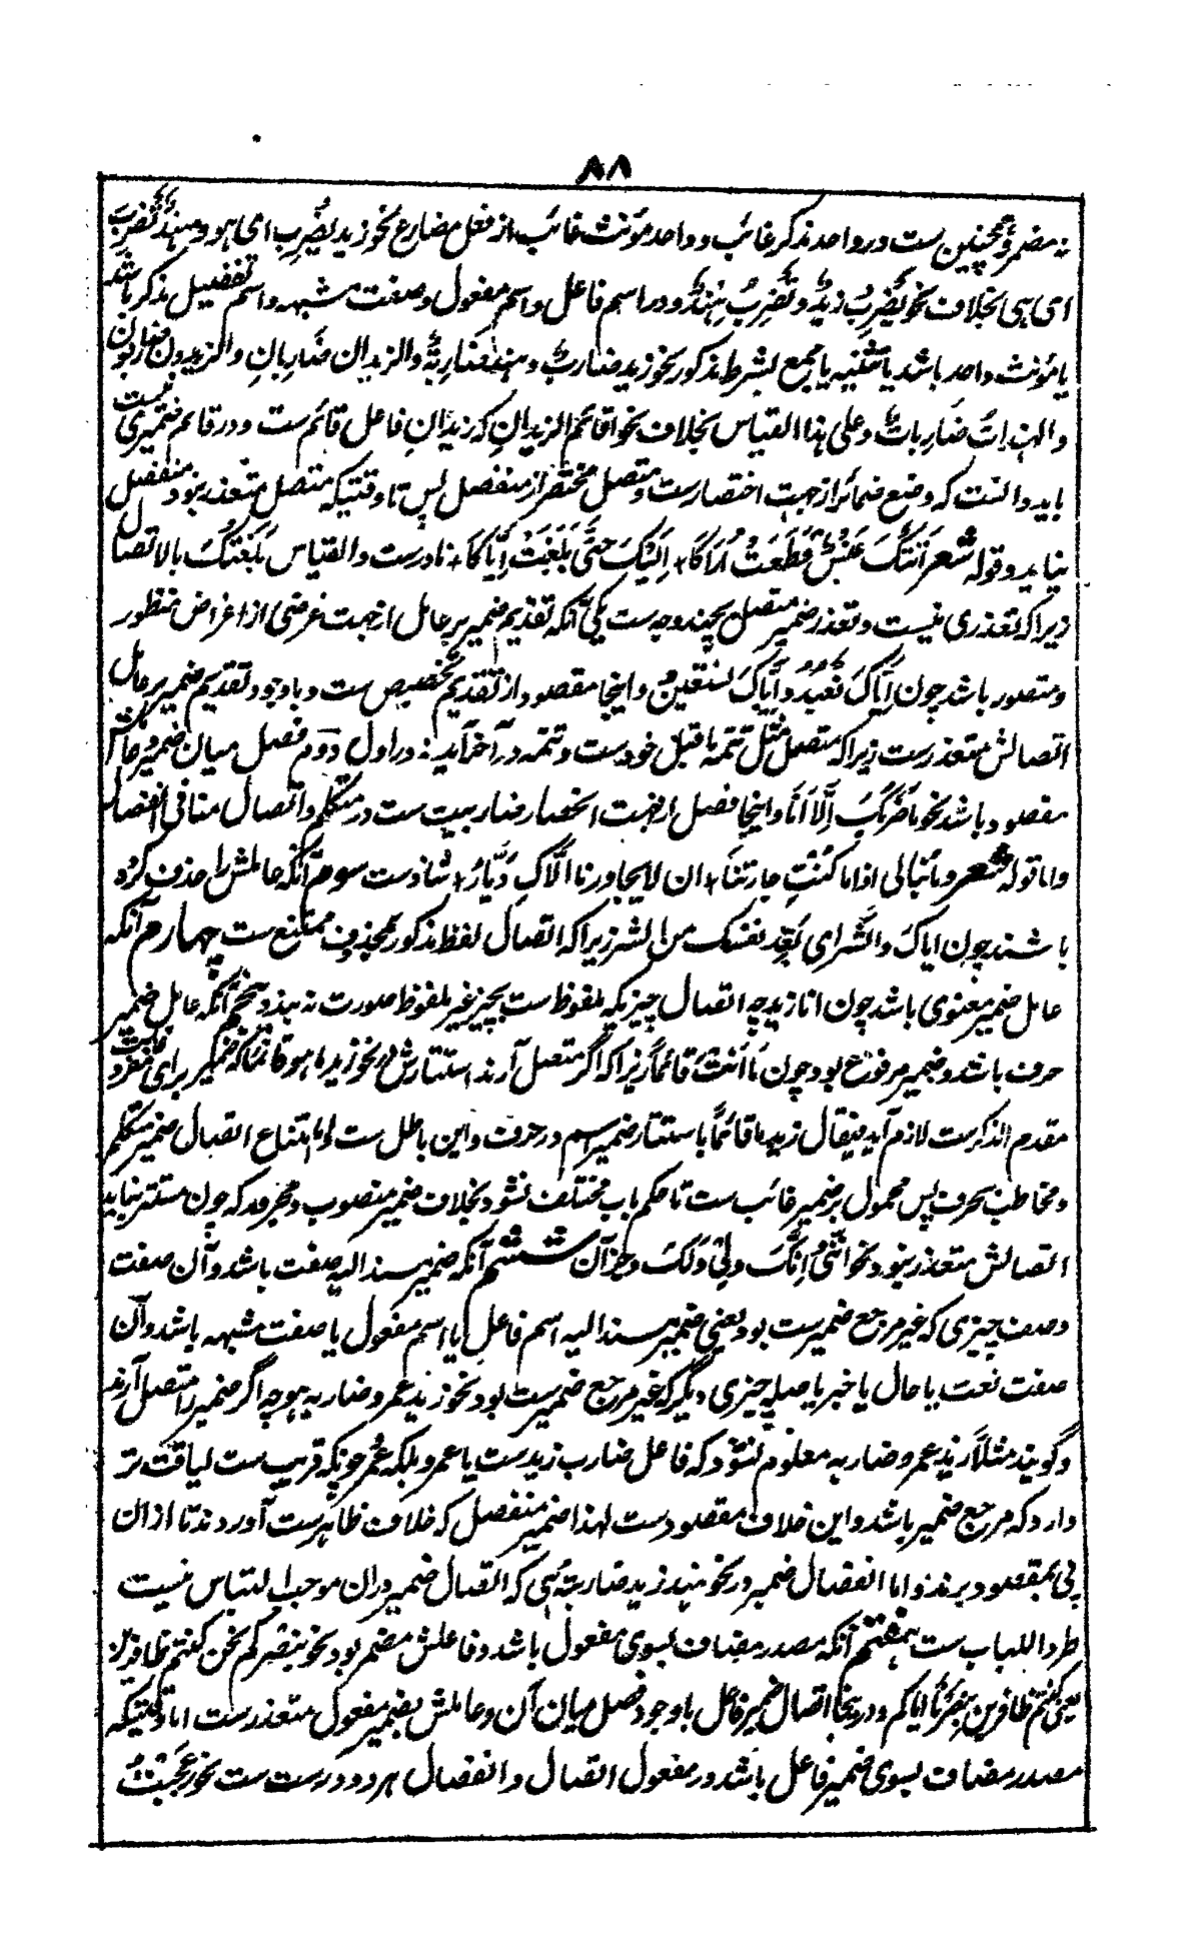 ٨٨
نه مضمر و همچنین ست در واحد مذکر غائب و واحد مؤنث غائب از فعل مضارع نحو زید یَضْرِبُ ای هو و هِنْدٌ تَضْرِبُ
ای هی بخلاف نحو یَضْرِبُ زیدٌ و تَضْرِبُ هِنْدٌ و در اسم فاعل و اسم مفعول و صفت مشبهه و اسم تفضیل مذکر باشد
یا مؤنث واحد باشد یا تثنیه یا جمع بشرط مذکور نحو زید ضاربٌ و هند ضارِبةٌ و الزیدان ضَارِبانِ و الزیدون ضاربون
و الهنداتُ ضَارِباتٌ و علی هذا القیاس بخلاف نحو اقائم الزیدانِ که زیدانِ فاعل قائم ست و در قائم ضمیری نیست
باید دانست که وضع ضمائر از جهت اختصارست و متصل مختصر از منفصل پس تا وقتیکه متصل متعذر نبود منفصل
نیاید و قوله شعر اَتَتْكَ عَنْسٌ قَطَعَتْ اَرَاكَا٭ اِلَیْكَ حَتّٰی بَلَغَتْ اِیَّاكَا٭ نادرست و القیاس بَلَغَتْكَ بالاتصال
زیرا که تعذری نیست و تعذر ضمیر متصل بچند وجه ست یکی آنکه تقدیم ضمیر بر عامل از جهت غرضی از اغراض منظور
و متصور باشد چون اِیَّاكَ نَعْبُدُ و اِیَّاكَ نَسْتَعِیْنُ و اینجا مقصود از تقدیم تخصیص ست و باوجود تقدیم ضمیر بر عامل
اتصالش متعذرست زیرا که متصل مثل تتمه ماقبل خودست و تتمه در آخر آید نه در اول دوم فصل میان ضمیر و عاملش
مقصود باشد نحو مَا ضَرَبَكَ اِلَّا اَنَا و اینجا فصل از جهت انحصار ضاربیت ست در متکلم و اتصال منافی انفصال
و اما قوله شعر و ما نُبالی اذا ما کُنْتِ جارتَنا٭ ان لا یجاورنا الّاكِ دَیَّارُ٭ شاذست سوم آنکه عاملش را حذف کرده
باشند چون ایاكَ و الشَّرَّ ای بَعِّد نفسك من الشر زیرا که اتصال لفظ مذکور بمحذوف ممتنع ست چهارم آنکه
عامل ضمیر معنوی باشد چون انا زید چه اتصال چیزیکه ملفوظ ست بچیز غیر ملفوظ صورت نه بندد پنجم آنکه عامل ضمیر
حرف باشد و ضمیر مرفوع بود چون مَا اَنْتَ قائماً زیرا که اگر متصل آرند استتارش در نحو زید ما هو قائماً که ضمیر برای مفرد غائب
مقدم الذکرست لازم آید فیقال زید ما قائماً باستتار ضمیر اسم در حرف و این باطل ست و اما امتناع اتصال ضمیر متکلم
و مخاطب بحرف پس محمول بر ضمیر غائب ست تا حکم باب مختلف نشود بخلاف ضمیر منصوب و مجرور که چون مستتر نیاید
اتصالش متعذر نبود نحو اِنَّنِیْ اِنَّكَ و لِیْ و لَكَ و جز آن ششم آنکه ضمیر مسند الیه صفت باشد و آن صفت
وصف چیزی که غیر مرجع ضمیرست بود یعنی ضمیر مسند الیه اسم فاعل یا اسم مفعول یا صفت مشبهه باشد و آن
صفت نعت یا حال یا خبر یا صله چیزی دیگر که غیر مرجع ضمیرست بود نحو زید عمرو ضاربه هو چه اگر ضمیر را متصل آرند
و گویند مثلاً زید عمرو ضاربه معلوم نشود که فاعل ضارب زیدست یا عمرو بلکه عمرو چونکه قریب ست لیاقت تر
دارد که مرجع ضمیر باشد و این خلاف مقصودست لهذا ضمیر منفصل که خلاف ظاهرست آوردند تا ازان
پی بمقصود برند و اما انفصال ضمیر در نحو هند زید ضاربتُه هی که اتصال ضمیر دران موجب التباس نیست
طرداً للباب ست هفتم آنکه مصدر مضاف بسوی مفعول باشد و فاعلش مضمر بود نحو بنصرکم نحن کنتم ظافرین
یعنی کنتم ظافرین بنصرنا ایاکم و درینجا اتصال ضمیر فاعل باوجود فصل میان آن و عاملش بضمیر مفعول متعذرست اما وقتیکه
مصدر مضاف بسوی ضمیر فاعل باشد در مفعول اتصال و انفصال هر دو درست ست نحو عَجِبْتُ